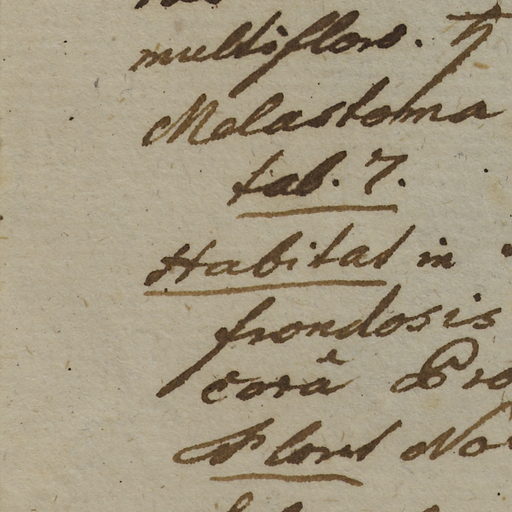 multifloro. ♄
Melastoma
tab. 7.
Habitat in
frondosis
corâ Pro
Floret No